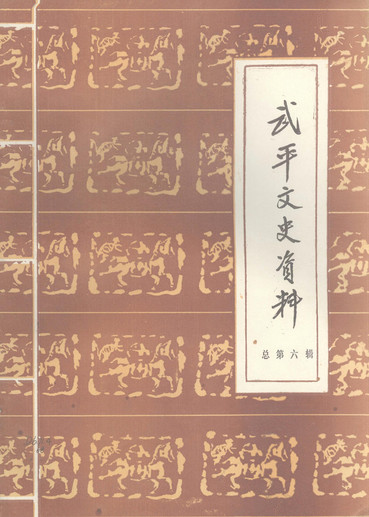 武平文史资料
总第六辑